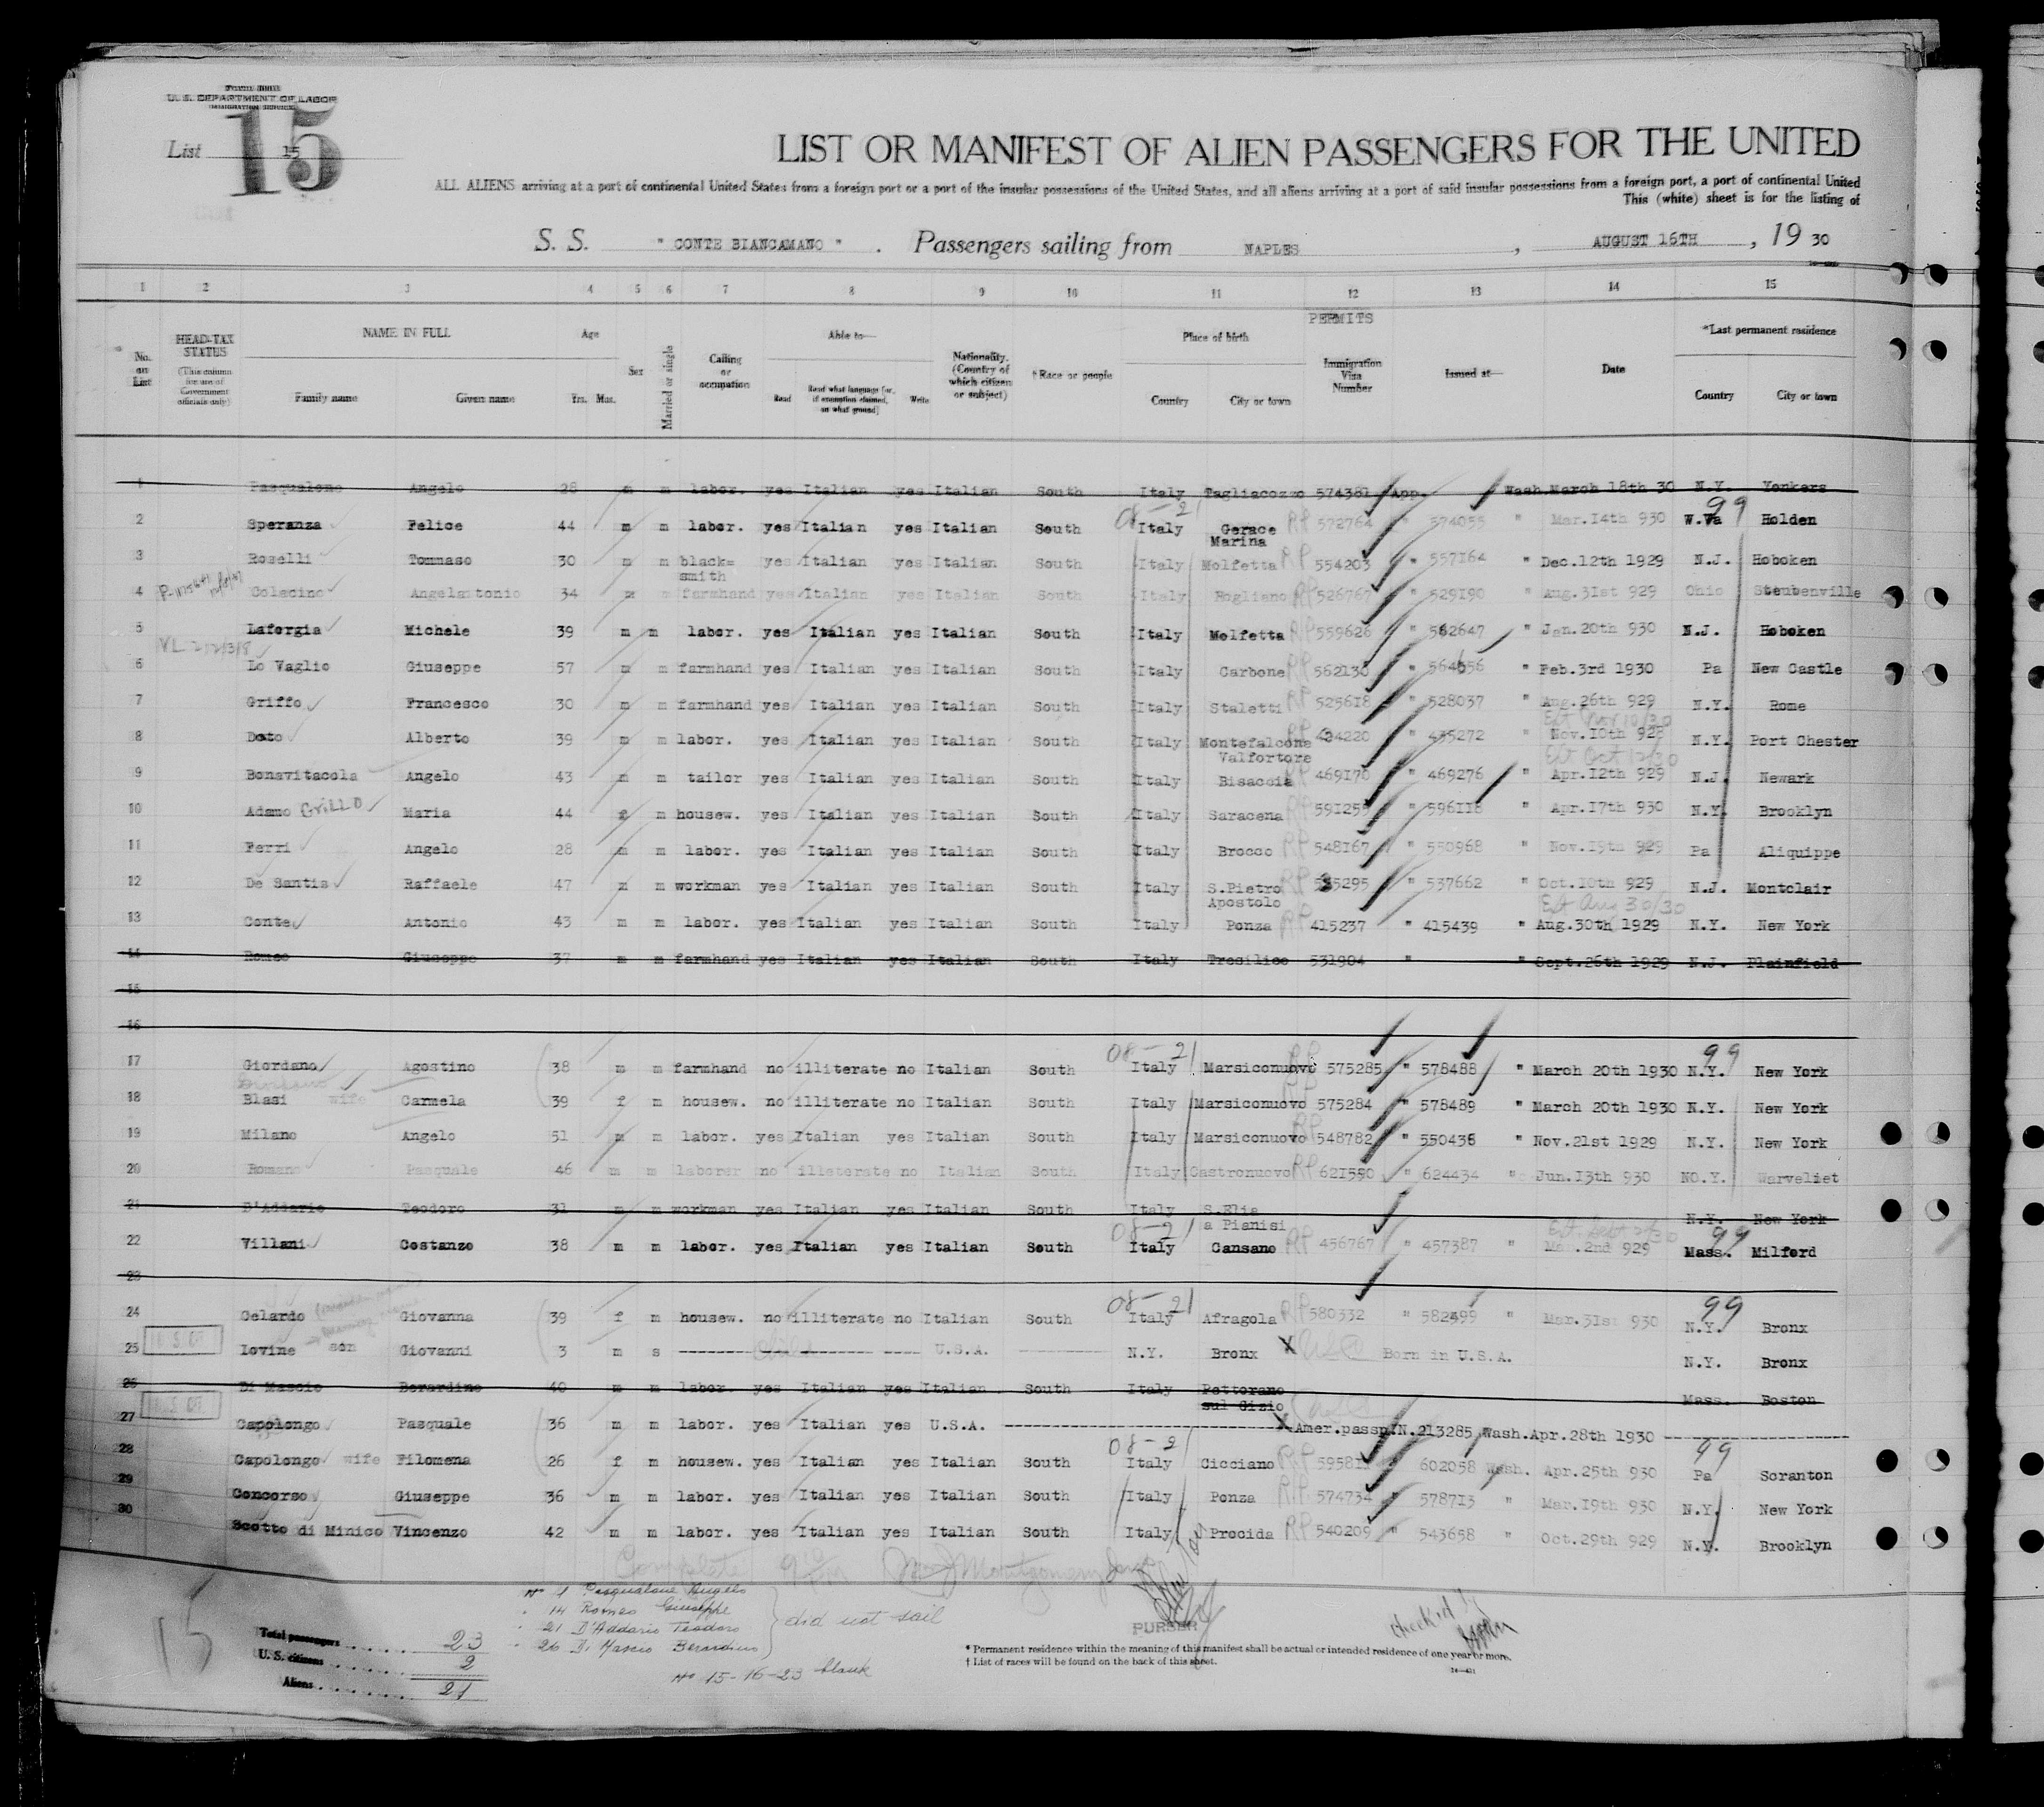 U. S. DEPARTMENT OF LABOR
IMMIGRATION SERVICE
List 15
15
LIST OR MANIFEST OF ALIEN PASSENGERS FOR THE UNITED
ALL ALIENS arriving at a port of continental United States from a foreign port or a port of the insular possessions of the United States, and all aliens arriving at a port of said insular possessions from a foreign port, a port of continental United
This (white) sheet is for the listing of
S. S. " CONTE BIANCAMANO " . Passengers sailing from NAPLES , AUGUST 16TH , 19 30
1 2 3 4 5 6 7 8 9 10 11 12 13 14 15
No. on List
HEAD-TAX STATUS (This column for use of Government officials only)
NAME IN FULL Family name Given name
Age Yrs. Mos.
Sex
Married or single
Calling or occupation
Able to— Read Read what language [or, if exemption claimed, on what ground] Write
Nationality. (Country of which citizen or subject)
†Race or people
Place of birth Country City or town
PERMITS
Immigration Visa Number
Issued at—
Date
*Last permanent residence Country City or town
1 Pasqualone Angelo 28 m m labor. yes Italian yes Italian South Italy Tagliacozzo 574381 App. Wash. March 18th 30 N.Y. Yonkers
08-21 99
2 Speranza Felice 44 m m labor. yes Italian yes Italian South Italy Gerace Marina RP 572764 " 574055 " Mar.14th 930 W.Va Holden
3 Roselli Tommaso 30 m m black=smith yes Italian yes Italian South Italy Molfetta RP 554203 " 557164 " Dec.12th 1929 N.J. Hoboken
4 Colacino Angelantonio 34 m m farmhand yes Italian yes Italian South Italy Rogliano RP 526767 " 529190 " Aug.31st 929 Ohio Steubenville
5 Lafergia Michele 39 m m labor. yes Italian yes Italian South Italy Molfetta RP 559626 " 562647 " Jan.20th 930 N.J. Hoboken
6 Lo Vaglio Giuseppe 57 m m farmhand yes Italian yes Italian South Italy Carbone RP 562130 " 564656 " Feb.3rd 1930 Pa New Castle
7 Griffo Francesco 30 m m farmhand yes Italian yes Italian South Italy Staletti RP 525618 " 528037 " Aug.26th 929 N.Y. Rome
Ext Nov 10/30
8 Dato Alberto 39 m m labor. yes Italian yes Italian South Italy Montefalcone Valfortore RP 434220 " 435272 " Nov.10th 928 N.Y. Port Chester
Ext Oct 12/30
9 Bonavitacola Angelo 43 m m tailor yes Italian yes Italian South Italy Bisaccia RP 469170 " 469276 " Apr.12th 929 N.J. Newark
10 Adamo GRILLO Maria 44 f m housew. yes Italian yes Italian South Italy Saracena RP 591255 " 596118 " Apr.17th 930 N.Y. Brooklyn
11 Ferri Angelo 28 m m labor. yes Italian yes Italian South Italy Brocco RP 548167 " 550968 " Nov.19th 929 Pa Aliquippe
12 De Santis Raffaele 47 m m workman yes Italian yes Italian South Italy S.Pietro Apostolo RP 535295 " 537662 " Oct.10th 929 N.J. Montclair
Ext Aug 30/30
13 Conte Antonio 43 m m labor. yes Italian yes Italian South Italy Ponza RP 415237 " 415439 " Aug.30th 1929 N.Y. New York
14 Romeo Giuseppe 37 m m farmhand yes Italian yes Italian South Italy Tresilico 531904 " " Sept.26th 1929 N.J. Plainfield
15
16
08-21 99
17 Giordano Agostino 38 m m farmhand no illiterate no Italian South Italy Marsiconuovo RP 575285 " 578488 " March 20th 1930 N.Y. New York
18 Blasi wife Carmela 39 f m housew. no illiterate no Italian South Italy Marsiconuovo RP 575284 " 578489 " March 20th 1930 N.Y. New York
19 Milano Angelo 51 m m labor. yes Italian yes Italian South Italy Marsiconuovo RP 548782 " 550436 " Nov.21st 1929 N.Y. New York
20 Romano Pasquale 46 m m laborer no illeterate no Italian South Italy Castronuovo RP 621550 " 624434 " Jun.13th 930 NO.Y. Warveliet
21 D'Addario Teodoro 31 m m workman yes Italian yes Italian South Italy S.Elia a Pianisi N.Y. New York
08-21 99
22 Villani Costanzo 38 m m labor. yes Italian yes Italian South Italy Cansano RP 456767 " 457387 " Mar.2nd 929 Mass. Milford
23
08-21 99
24 Gelardo Giovanna 39 f m housew. no illiterate no Italian South Italy Afragola RP 580332 " 582499 " Mar.31st 930 N.Y. Bronx
25 Iovine son Giovanni 3 m s U.S.A. N.Y. Bronx X Born in U.S.A. N.Y. Bronx
26 Di Mascio Berardino 40 m m labor. yes Italian yes Italian South Italy Pettorano sul Gizio Mass. Boston
27 Capolongo Pasquale 36 m m labor. yes Italian yes U.S.A. X Amer.passp.N.213285 Wash.Apr.28th 1930
08-21 99
28 Capolongo wife Filomena 26 f m housew. yes Italian yes Italian South Italy Cicciano RP " 602058 Wash. Apr.25th 930 Pa Scranton
29 Concorso Giuseppe 36 m m labor. yes Italian yes Italian South Italy Ponza RP 574734 " 578713 " Mar.19th 930 N.Y. New York
30 Scotto di Minico Vincenzo 42 m m labor. yes Italian yes Italian South Italy Procida RP 540209 " 543658 " Oct.29th 929 N.Y. Brooklyn
Complete Montgomery
No 1 Pasqualone Angelo
" 14 Romeo Giuseppe
" 21 D'Addario Teodoro
" 26 Di Mascio Berardino
did not sail
No 15-16-23 blank
15
Total passengers 23
U. S. citizens 2
Aliens 21
PURSER
checked by
* Permanent residence within the meaning of this manifest shall be actual or intended residence of one year or more.
† List of races will be found on the back of this sheet.